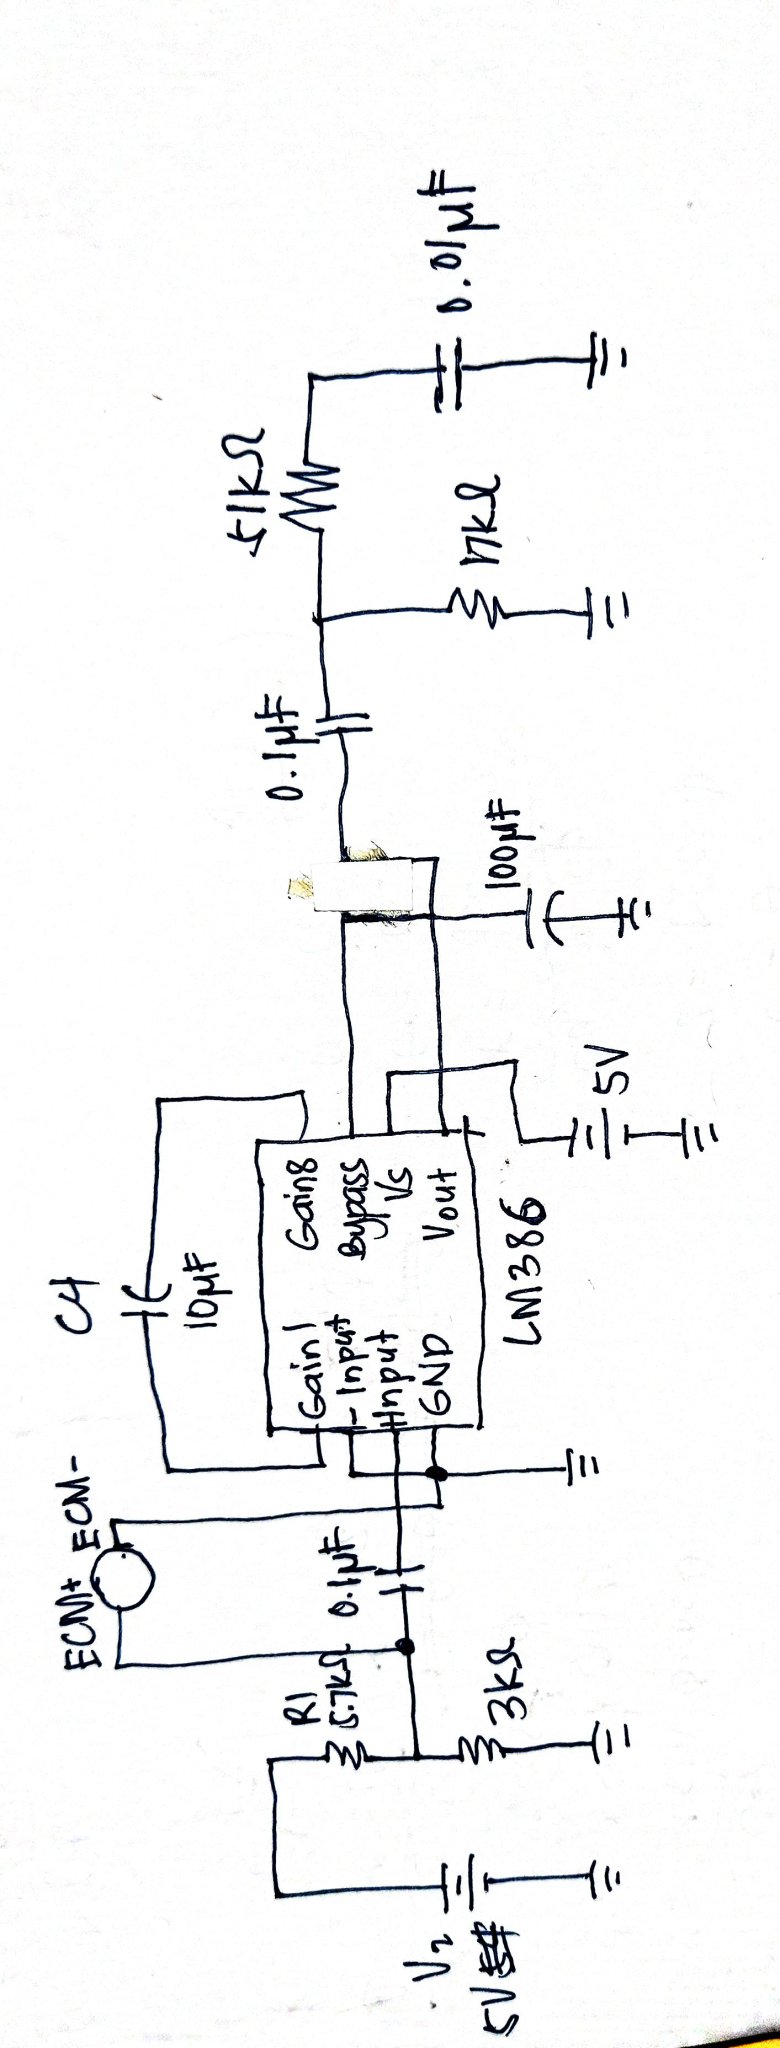 V2
5V
R1
5.7kΩ
3kΩ
ECM+
ECM-
0.1μF
C4
10μF
Gain1
-Input
+Input
GND
Gain8
Bypass
Vs
Vout
LM386
5V
100μF
0.1μF
17kΩ
51kΩ
0.01μF